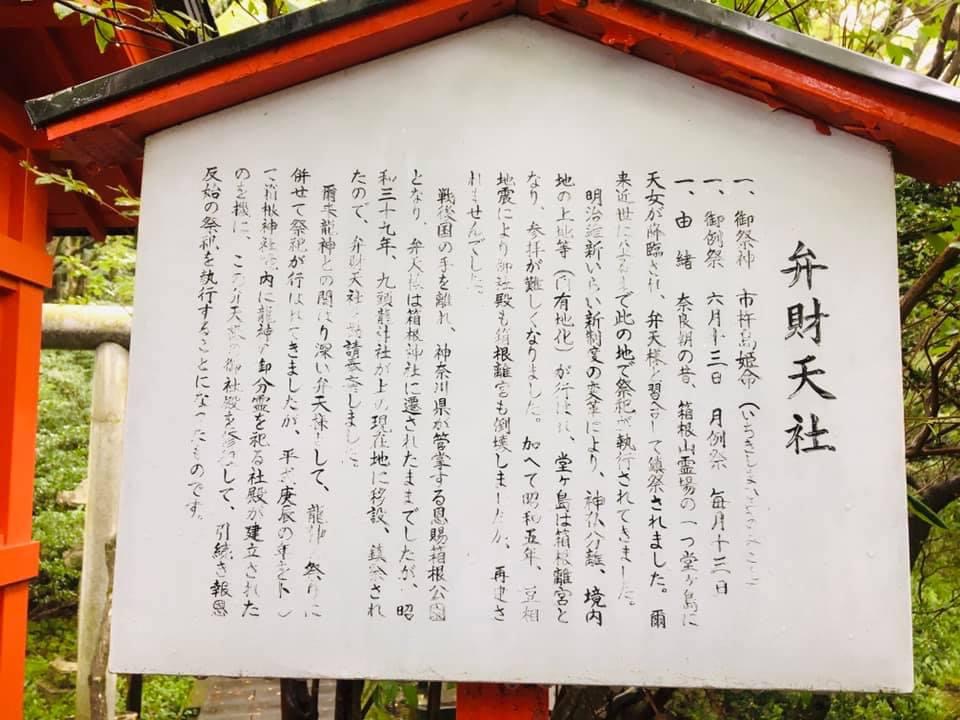 弁財天社
一、御祭神 市杵島姫命（いちきしまひめのみこと）
一、御例祭 六月十三日 月例祭 毎月十三日
一、由緒 奈良朝の昔、箱根山霊場の一つ堂ヶ島に
天女が降臨され、弁天様と習合して鎮祭されました。爾
来近世に至るまで此の地で祭祀が執行されてきました。
明治維新いらい新制度の変革により、神仏分離、境内
地の上地等（国有地化）が行はれ、堂ヶ島は箱根離宮と
なり、参拝が難しくなりました。加へて昭和五年、豆相
地震により御社殿も箱根離宮も倒壊しましたが、再建さ
れませんでした。
戦後国の手を離れ、神奈川県が管掌する恩賜箱根公園
となり、弁天様は箱根神社に遷されたままでしたが、昭
和三十九年、九頭龍神社が上の現在地に移設、鎮祭され
たので、弁財天社も勧請奉斎しました。
爾来龍神との関はり深い弁天様として、龍神の祭りに
併せて祭祀が行はれてきましたが、平成庚辰の年をトし
て箱根神社境内に龍神の御分霊を祀る社殿が建立された
のを機に、この弁天様の御社殿を して、引続き報恩
反始の祭祀を執行することになったものです。